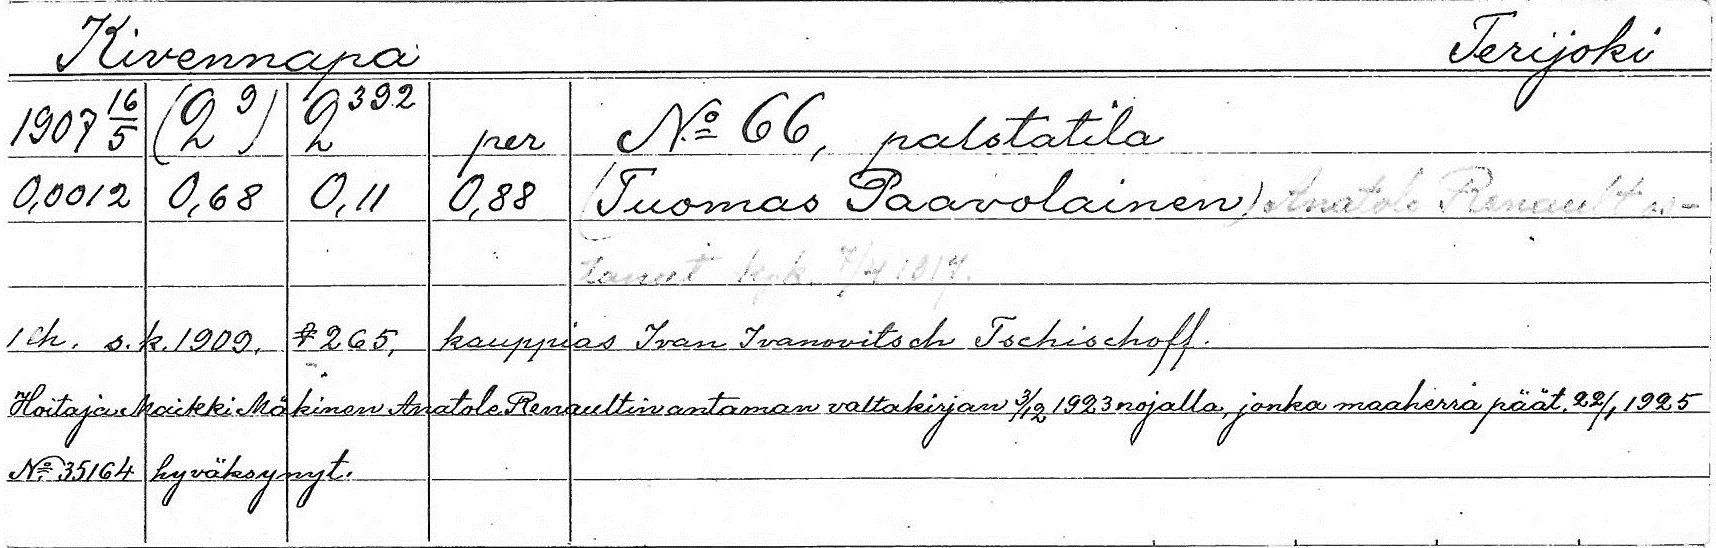 Kivennapa Terijoki
1907 16/5 (2⁹) 2³⁹² per No 66, palstatila
0,0012 0,68 0,11 0,88 (Tuomas Paavolainen) Anatole Renault os-
tanut kpk.
1 ch. s.k. 1909, # 265, kauppias Ivan Ivanovitsch Tschischoff.
Hoitaja Maikki Mäkinen Anatole Renaultin antaman valtakirjan 3/12 1923 nojalla, jonka maaherra päät. 22/1 1925
No 35164 hyväksynyt.